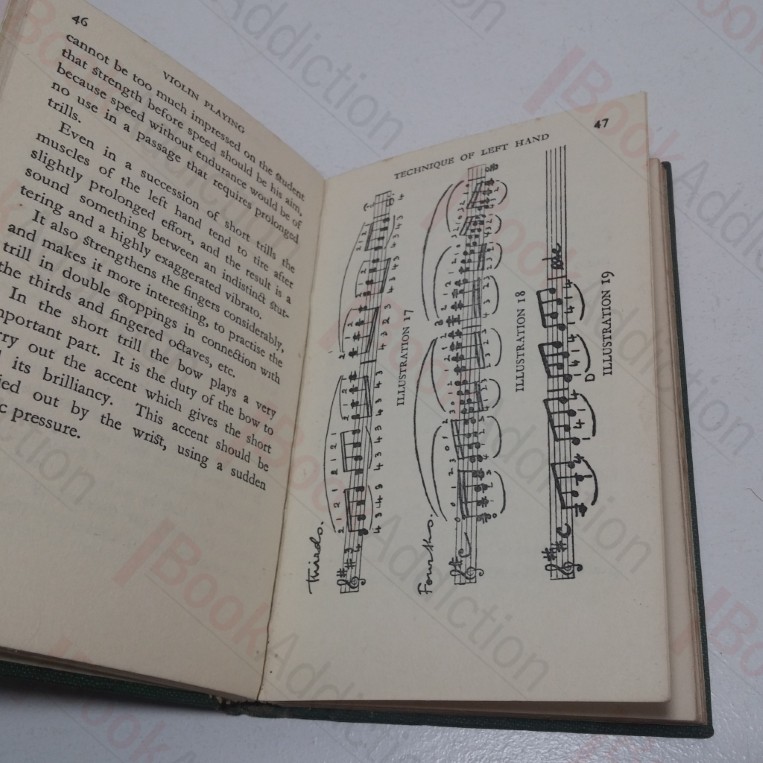 46
VIOLIN PLAYING
cannot be too much impressed on the student
that strength before speed should be his aim,
because speed without endurance would be of
no use in a passage that requires prolonged
trills.
Even in a succession of short trills the
muscles of the left hand tend to tire after
slightly prolonged effort, and the result is a
sound something between an indistinct stut-
tering and a highly exaggerated vibrato.
It also strengthens the fingers considerably,
and makes it more interesting, to practise the
trill in double stoppings in connection with
the thirds and fingered octaves, etc.
In the short trill the bow plays a very
mportant part. It is the duty of the bow to
rry out the accent which gives the short
its brilliancy. This accent should be
ied out by the wrist, using a sudden
c pressure.
47
TECHNIQUE OF LEFT HAND
Thirds.
ILLUSTRATION 17
Fourths.
ILLUSTRATION 18
D
ILLUSTRATION 19
BookAddiction